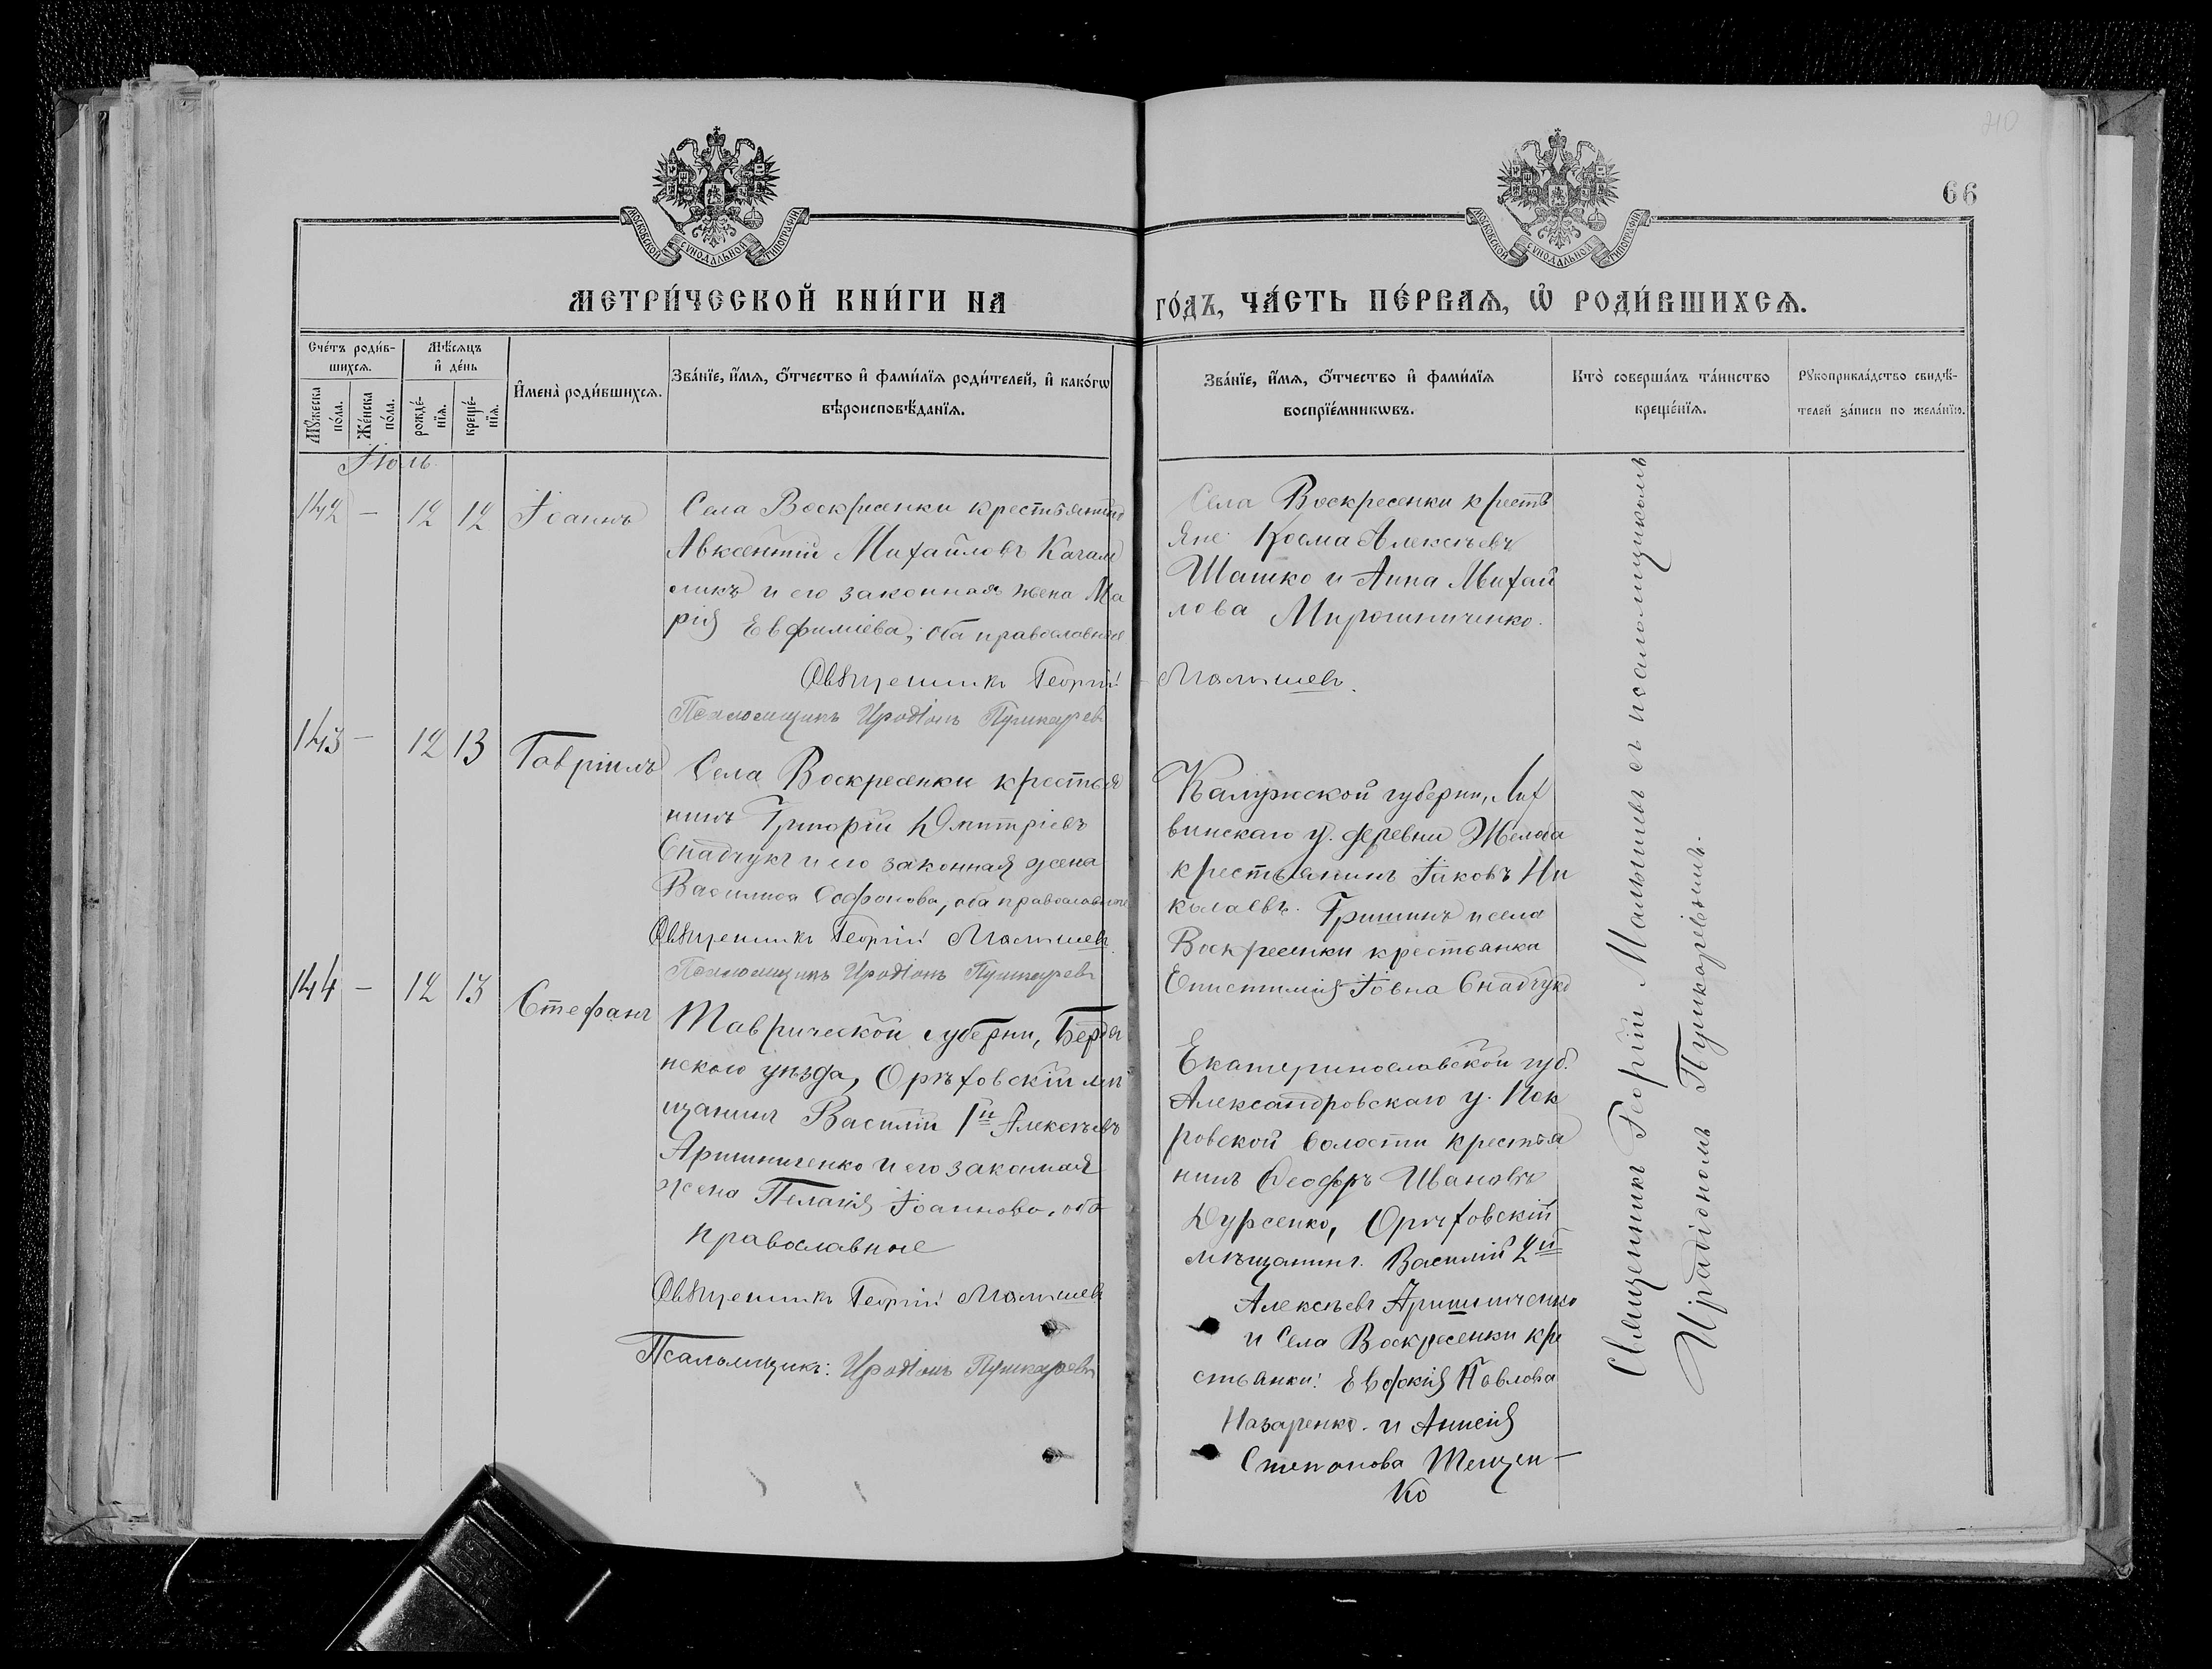 210
66
МОСКОВСКОЙ СѴНОДАЛЬНОЙ ТИПОГРАФІИ
МОСКОВСКОЙ СѴНОДАЛЬНОЙ ТИПОГРАФІИ
МЕТРИ́ЧЕСКОЙ КНИ́ГИ НА
ГО́ДЪ, ЧА́СТЬ ПЕ́РВАѦ, Ѡ҆ РОДИ́ВШИХСѦ.
Сче́тъ роди́в-
шихсѧ.
Мꙋ́жеска
по́ла.
Же́нска
по́ла.
Мѣ́сѧцъ
и҆ де́нь
рожде́-
нїѧ.
креще́-
нїѧ.
И҆мена̀ роди́вшихсѧ.
Зва́нїе, и҆́мѧ, ѻ҆́тчество и҆ фами́лїѧ роди́телей, и҆ како́гѡ
вѣроисповѣ́данїѧ.
Зва́нїе, и҆́мѧ, ѻ҆́тчество и҆ фами́лїѧ
воспрїе́мникѡвъ.
Кто̀ соверша́лъ та́инство
креще́нїѧ.
Рꙋкоприкла́дство свидѣ́-
телей за́писи по жела́нїю.
Іюль
142 — 12 12 Іоаннъ
Села Воскресенки крестьянинъ
Авксентій Михайловъ Качал
оликъ и его законная жена Ма
рія Евфиміева, оба православные
Священникъ Георгій
Псаломщикъ Иродіонъ Пушкаревъ
Села Воскресенки кресть
яне: Косма Алексѣевъ
Шашко и Анна Михай
лова Мирошниченко.
Малышевъ.
143 — 12 13 Гавріилъ
Села Воскресенки крестья
нинъ Григорій Димитріевъ
Снадчукъ и его законная жена
Василиса Софонова, оба православные
Священникъ Георгій Малышевъ
Псаломщикъ Иродіонъ Пушкаревъ
Калужской губерніи, Лих
винскаго у. деревни
крестьянинъ Іаковъ Ни
колаевъ Гришинъ и села
Воскресенки крестьянка
Епистимія Іовна Снадчукъ
144 — 12 13 Стефанъ
Таврической губерніи, Бердян
нскаго уѣзда, Орѣховскій мѣ
щанинъ Василій 1й Алексѣевъ
Аришниченко и его законная
жена Пелагія Іоаннова, оба
православные
Священникъ Георгій Малышевъ
Псаломщикъ: Иродіонъ Пушкаревъ
Екатеринославской губ.
Александровскаго у. Пок
ровской волости крестья
нинъ Ѳеодоръ Ивановъ
Дурсенко, Орѣховскій
мѣщанинъ Василій 2й
Алексѣевъ Аришниченко
и села Воскресенки кре
стьянки: Евдокія Павлова
Назаренко и
Степанова Тещен-
ко
Священникъ Георгій Малышевъ съ псаломщикомъ
Иродіономъ Пушкаревымъ.